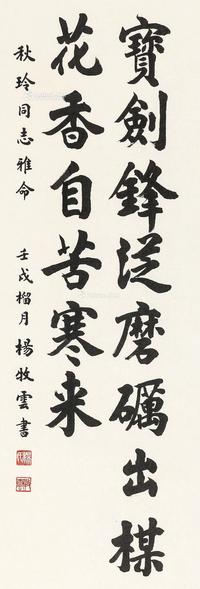 寶劍鋒從磨礪出楳
花香自苦寒来
秋玲同志雅命
壬戌榴月楊牧雲書